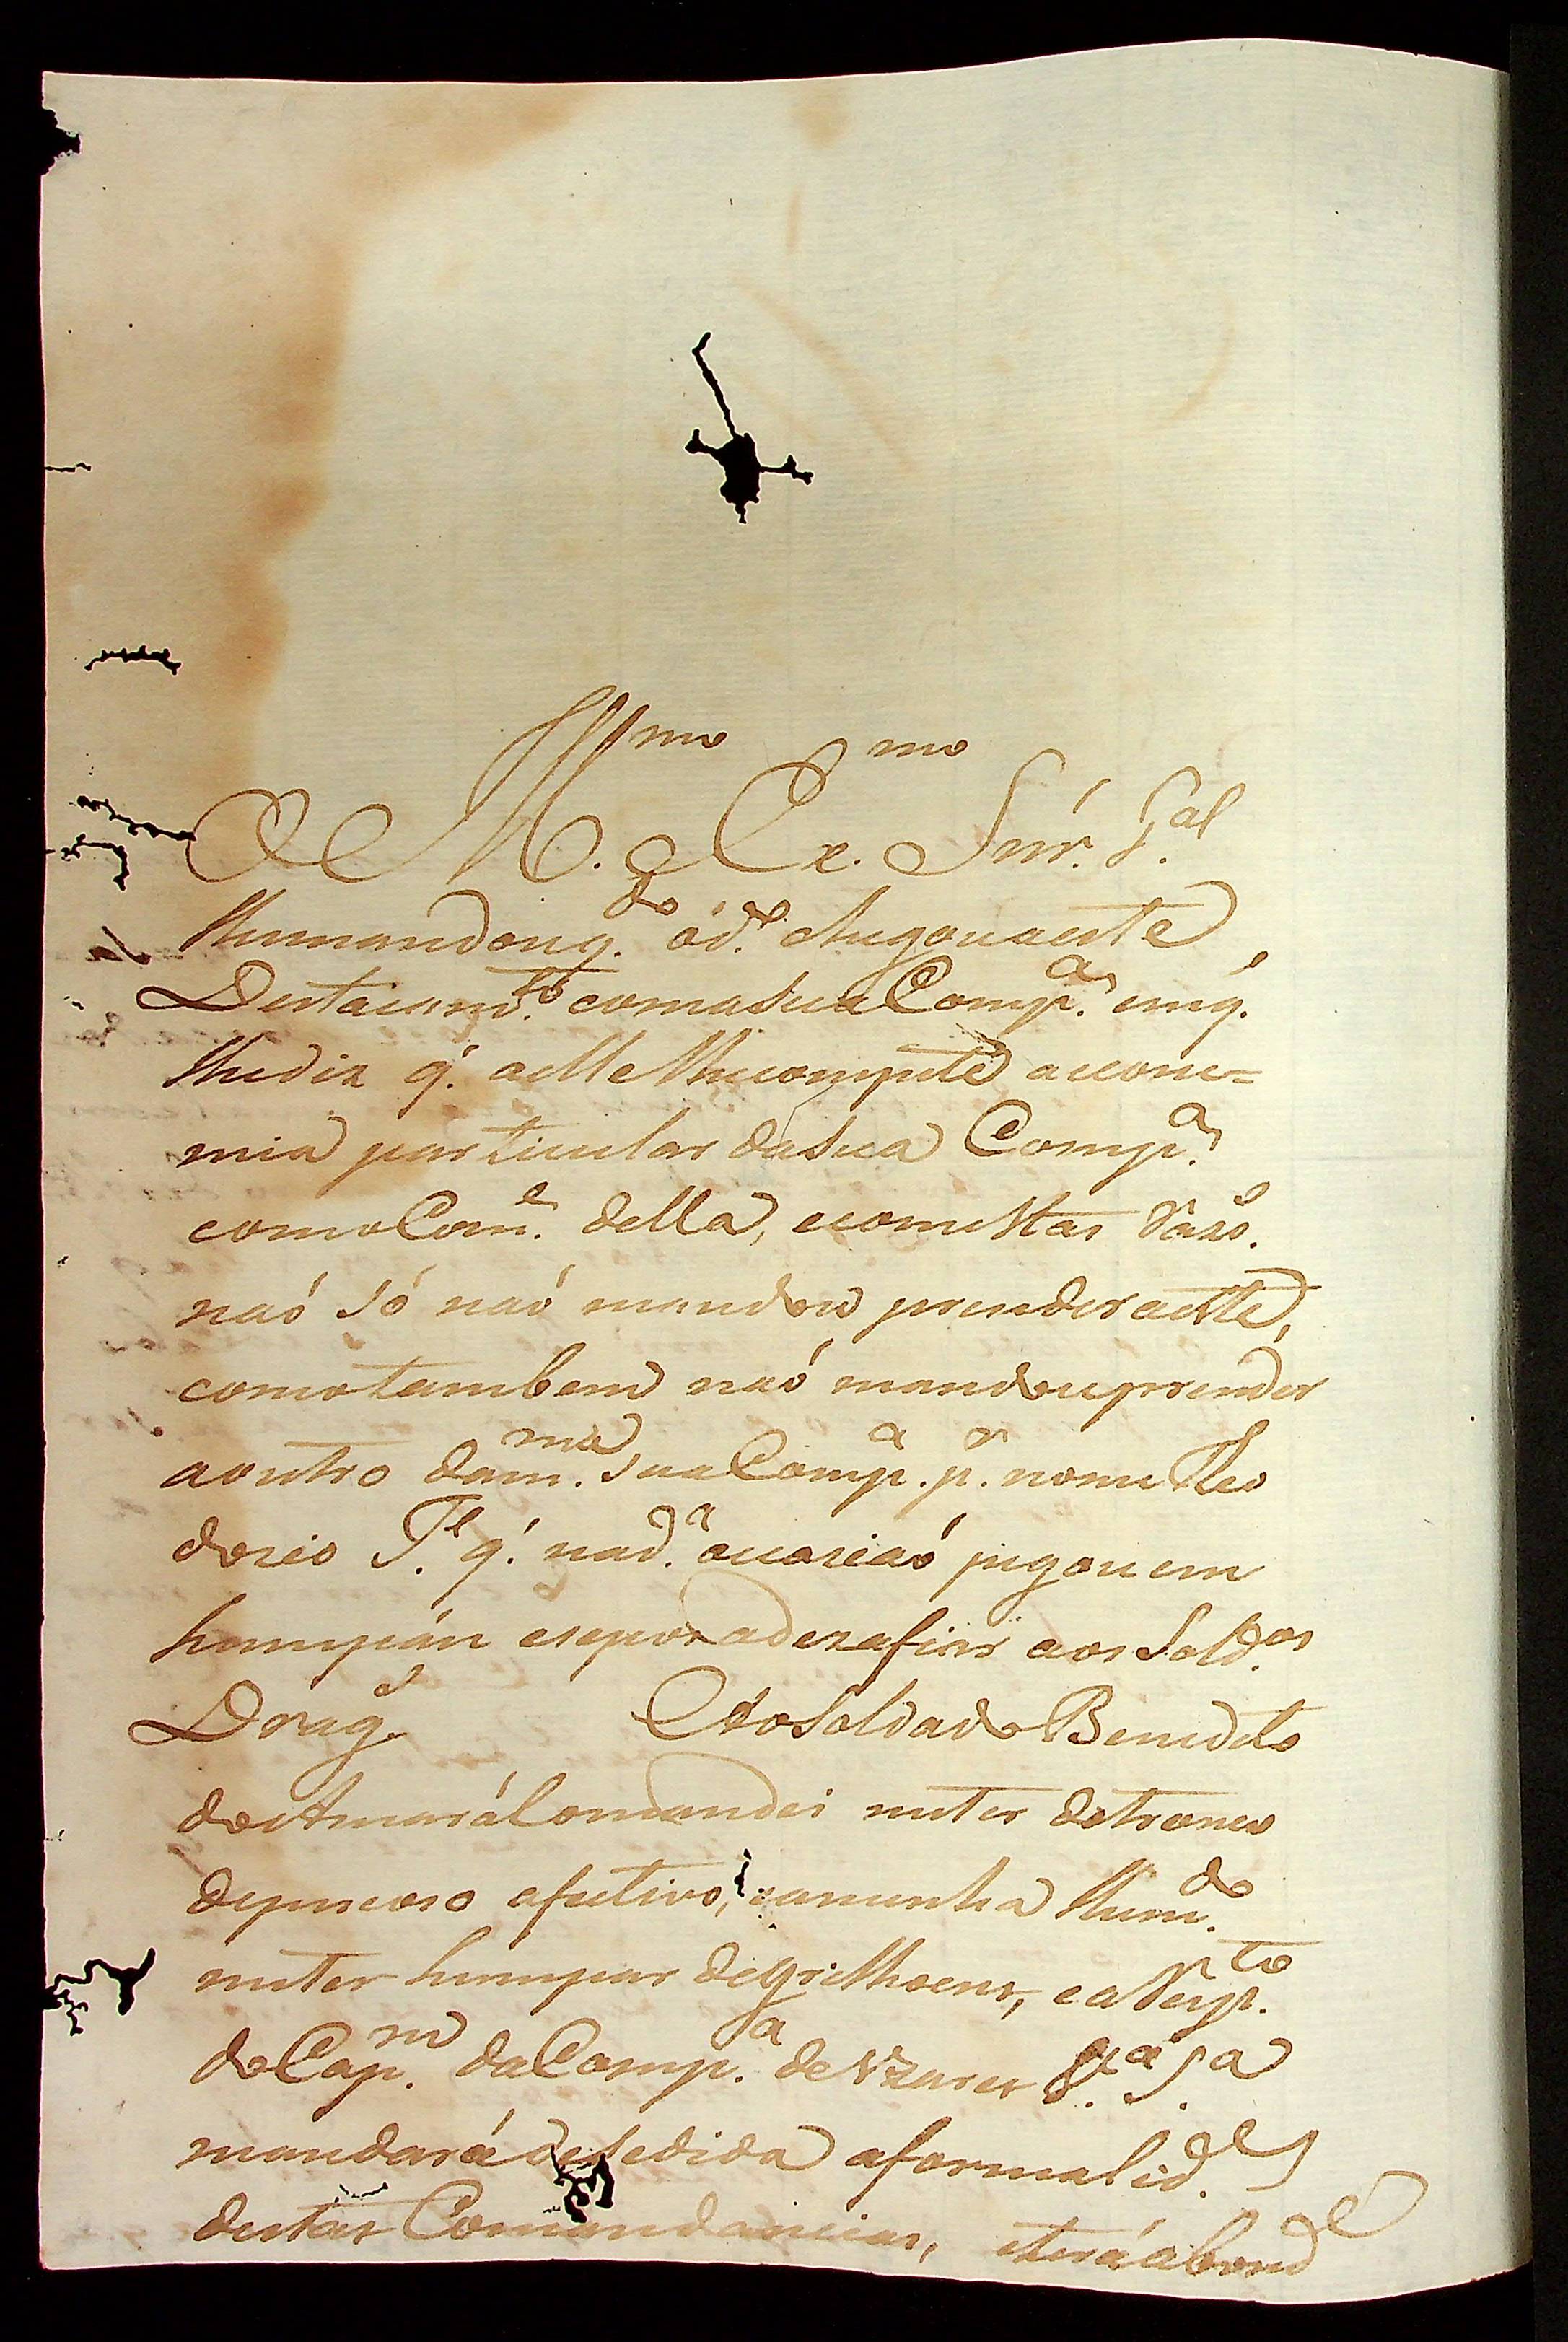 Ill.mo Ex.mo Snr. G.al
humandoug. do ód.e chegou aeste
Destacam.to comasua Comp.a emq.
lhediz q. aelle lhecompete aecono=
mia particular dasua Comp.a
como Com.e della, ecomestas razo.s
naó só naó mandou prender aeste,
comotambem naó mandouprender
aoutro dam.ma sua Comp.a p.r nome Theo
dozio J.e q. nad.a ocaziaó pegou em
humpáu esepoz adezafiar aos Sold.os
Drag.s Eo Soldado Benedito
do Amarál omandei meter detronco
depescoso efetivo, eamenha hum.do
meter humpar degrilhoens, eaResp.to
do Cap.m da Comp.a de Uzares V.a S.a
mandará desedida aformalid.e
destas Comandancias, eterá abond.e